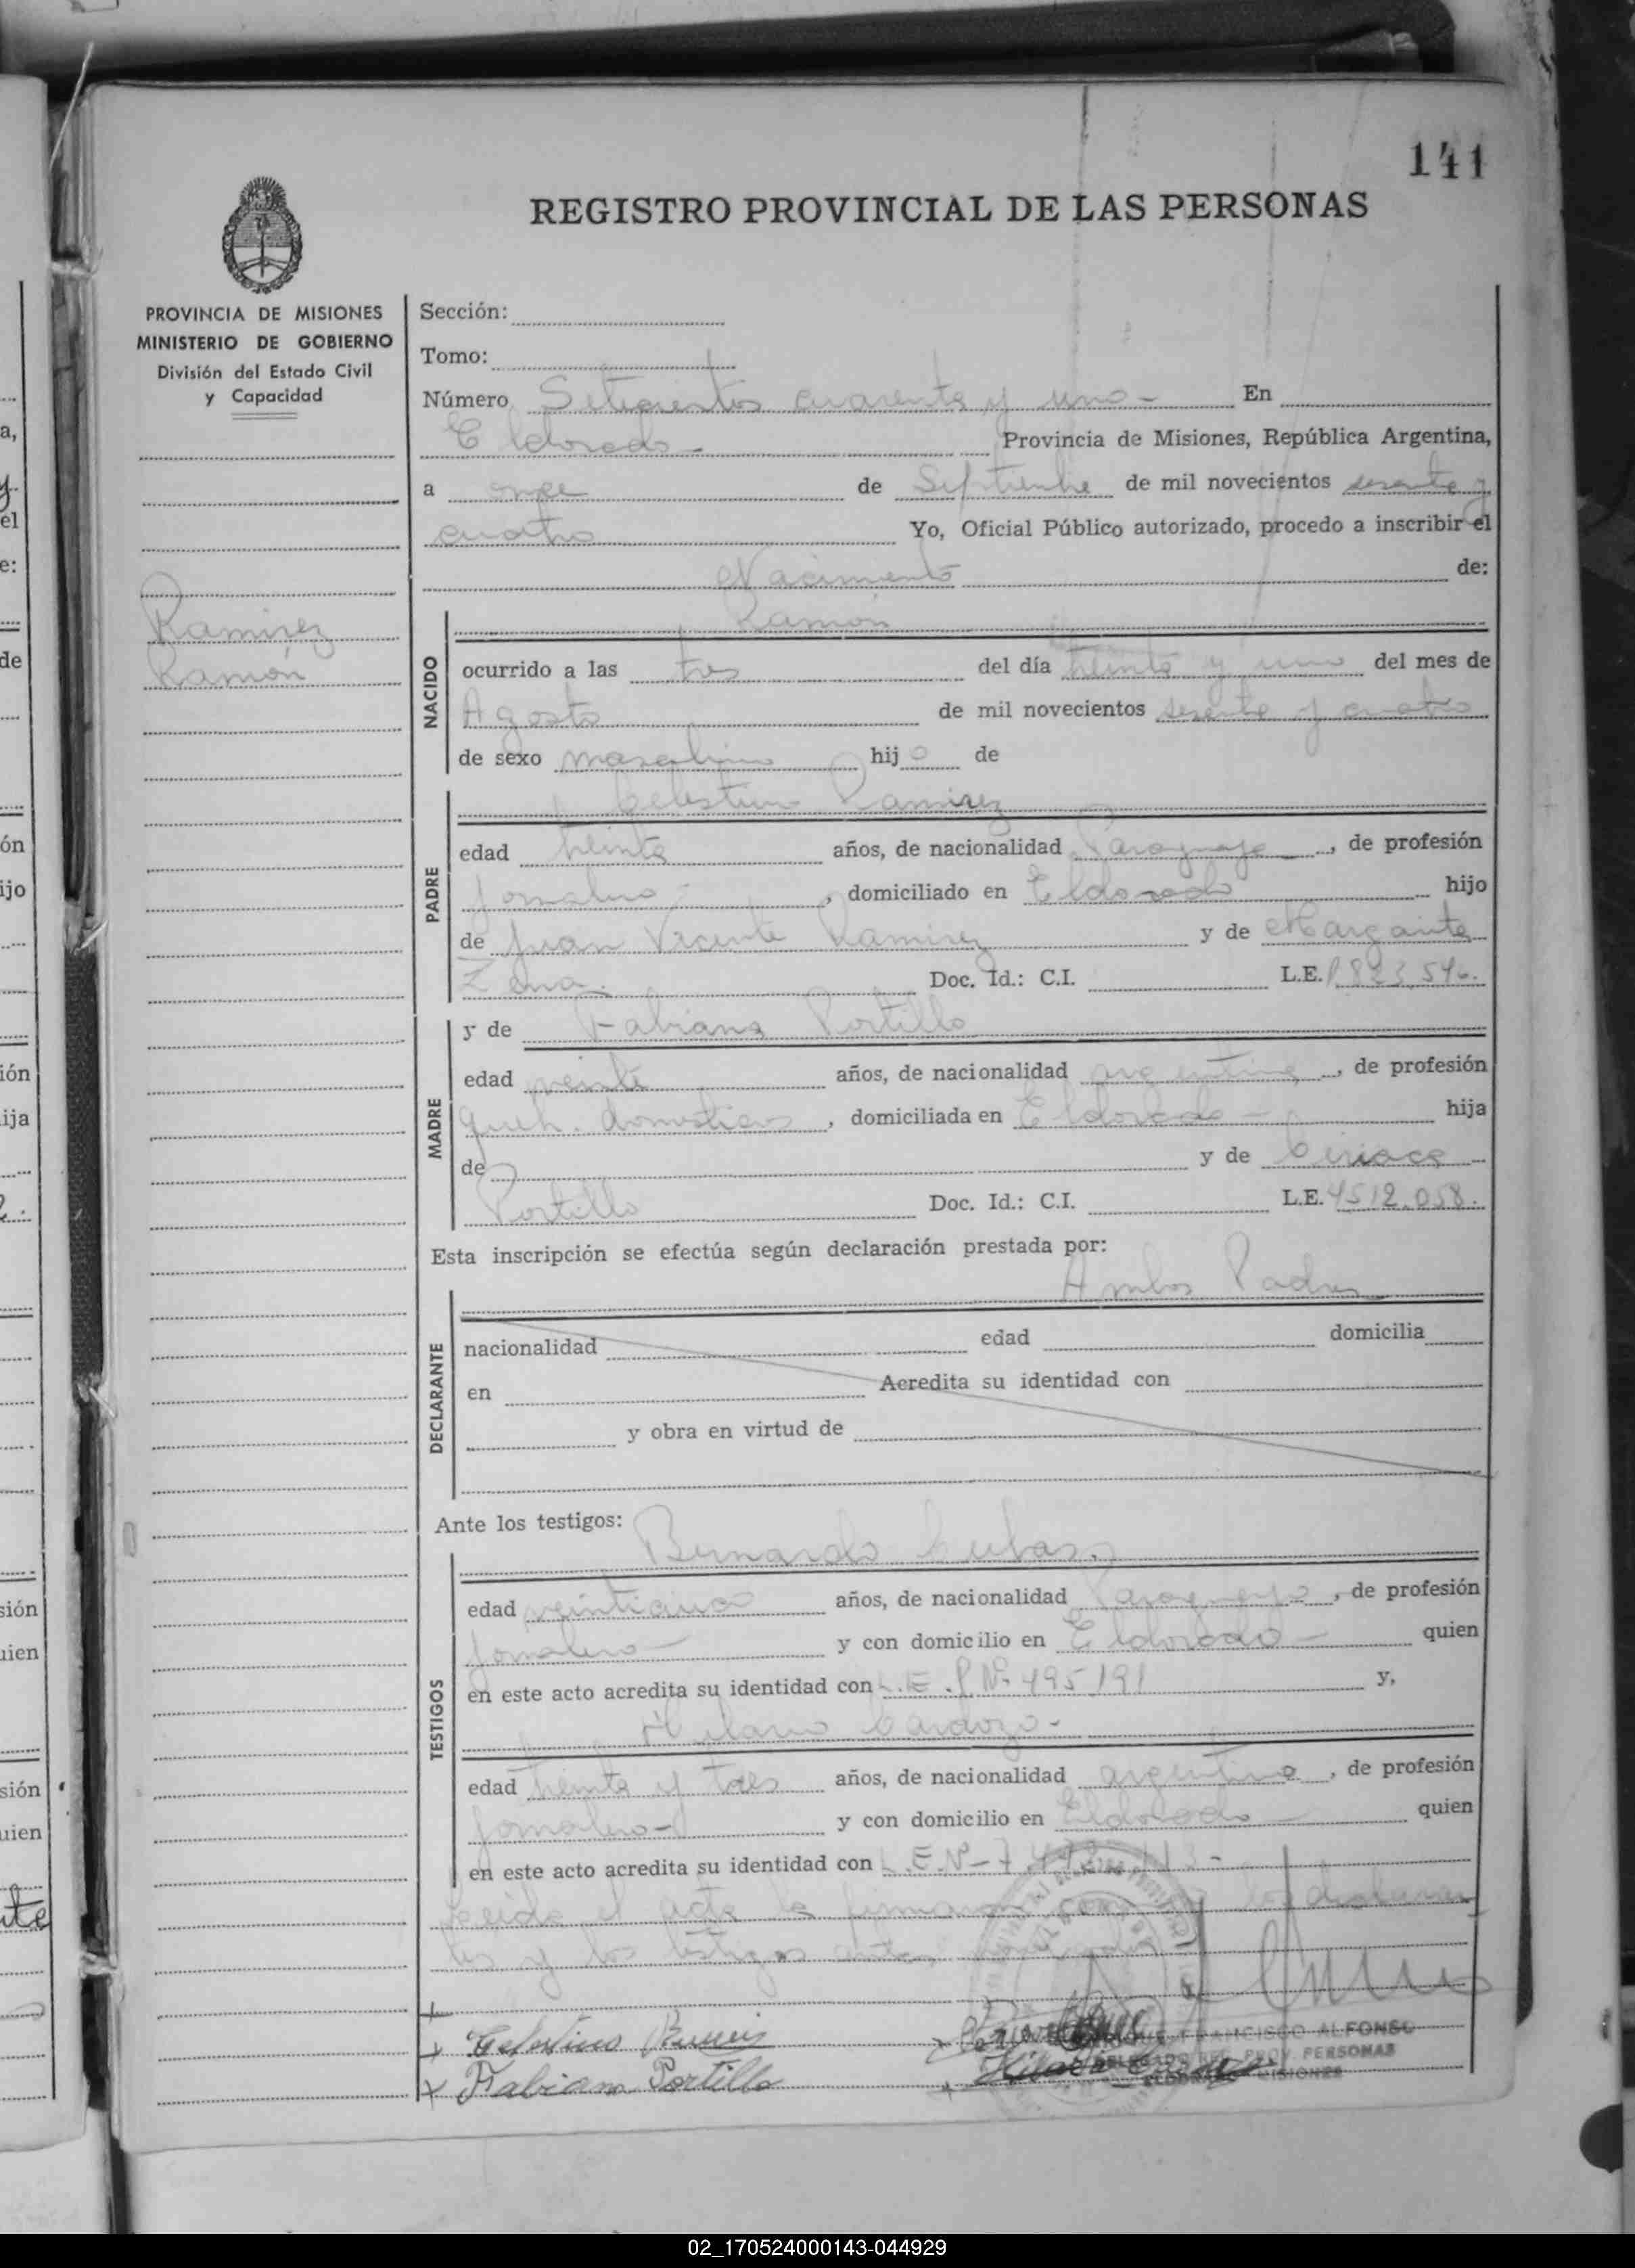 141
REGISTRO PROVINCIAL DE LAS PERSONAS
PROVINCIA DE MISIONES
MINISTERIO DE GOBIERNO
División del Estado Civil
y Capacidad
Ramirez
Ramón
Sección:
Tomo:
Número Setecientos cuarenta y uno - En
Eldorado - Provincia de Misiones, República Argentina,
a once de Septiembre de mil novecientos sesenta y
cuatro Yo, Oficial Público autorizado, procedo a inscribir el
Nacimiento de:
NACIDO
Ramón
ocurrido a las tres del día treinta y uno del mes de
Agosto de mil novecientos sesenta y cuatro
de sexo masculino hijo de
PADRE
Celestino Ramirez
edad treinta años, de nacionalidad Paraguaya, de profesión
jornalero -, domiciliado en Eldorado hijo
de Juan Vicente Ramirez y de Margarita
Zena. Doc. Id.: C.I. L.E.
MADRE
y de Fabiana Portillo
edad veinte años, de nacionalidad argentina, de profesión
queh. domesticos, domiciliada en Eldorado - hija
de y de Ciriaca
Portillo Doc. Id.: C.I. L.E. 4512.058.
Esta inscripción se efectúa según declaración prestada por:
Ambos Padres
DECLARANTE
nacionalidad edad domicilia
en Acredita su identidad con
y obra en virtud de
Ante los testigos:
TESTIGOS
Bernardo Cubas.
edad años, de nacionalidad Paraguayo, de profesión
jornalero - y con domicilio en Eldorado - quien
en este acto acredita su identidad con L.E. Nº 495191 y,
Hilario Cardozo -
edad treinta y tres años, de nacionalidad argentino, de profesión
jornalero - y con domicilio en Eldorado - quien
en este acto acredita su identidad con L.E.Nº-
Leida el acta la firmaron los declaran
tes y los testigos
Celestino Ramirez
Fabiana Portillo
FRANCISCO ALFONSO
DELEGADO REG. PROV. PERSONAS
ELDORADO MISIONES
02_170524000143-044929